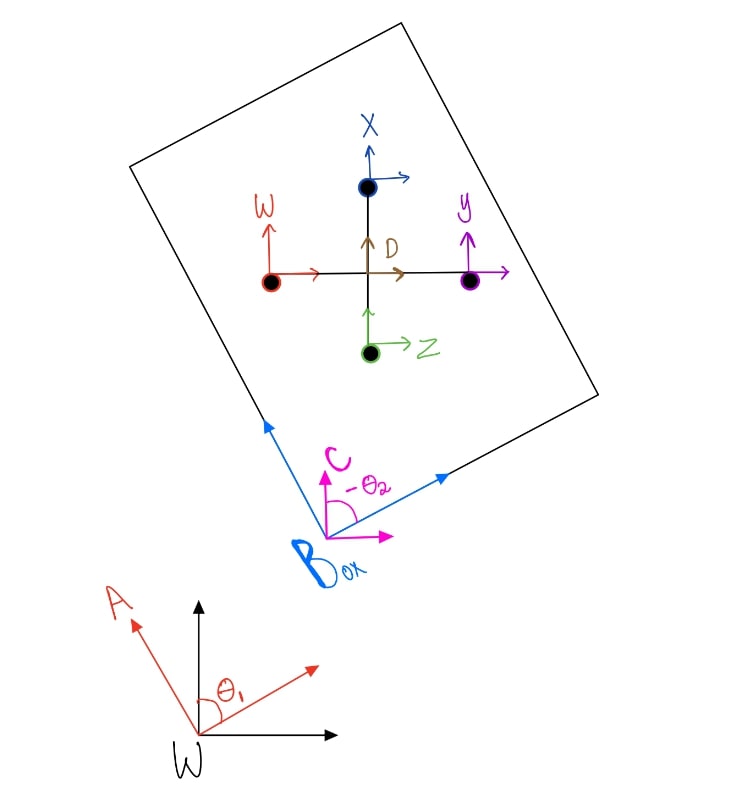 X
W
y
D
Z
C
-θ₂
Box
A
θ₁
W